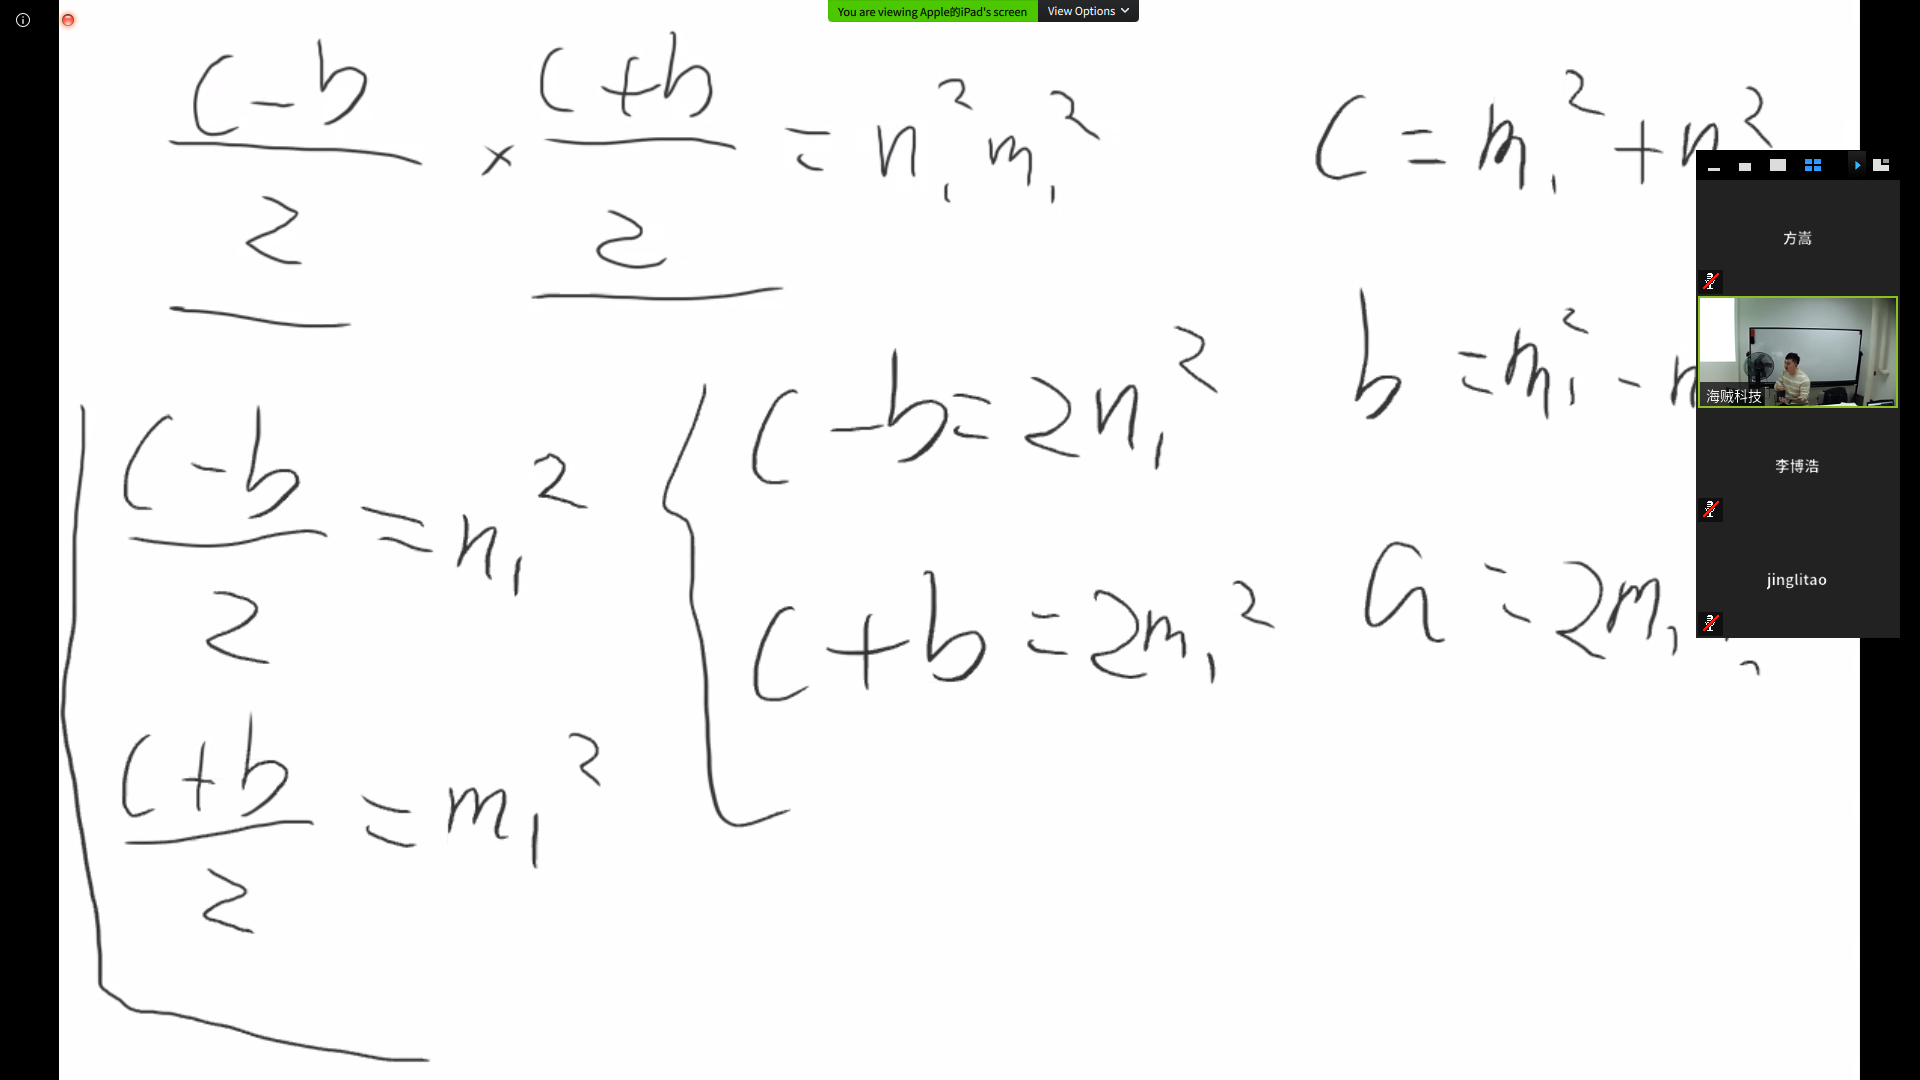 You are viewing Apple的iPad's screen View Options
(c-b)/2 × (c+b)/2 = n₁² m₁²
c = m₁² + n²
b = m₁² -
c-b = 2n₁²
c+b = 2m₁²
a = 2m₁
(c-b)/2 = n₁²
(c+b)/2 = m₁²
方嵩
海贼科技
李博浩
jinglitao